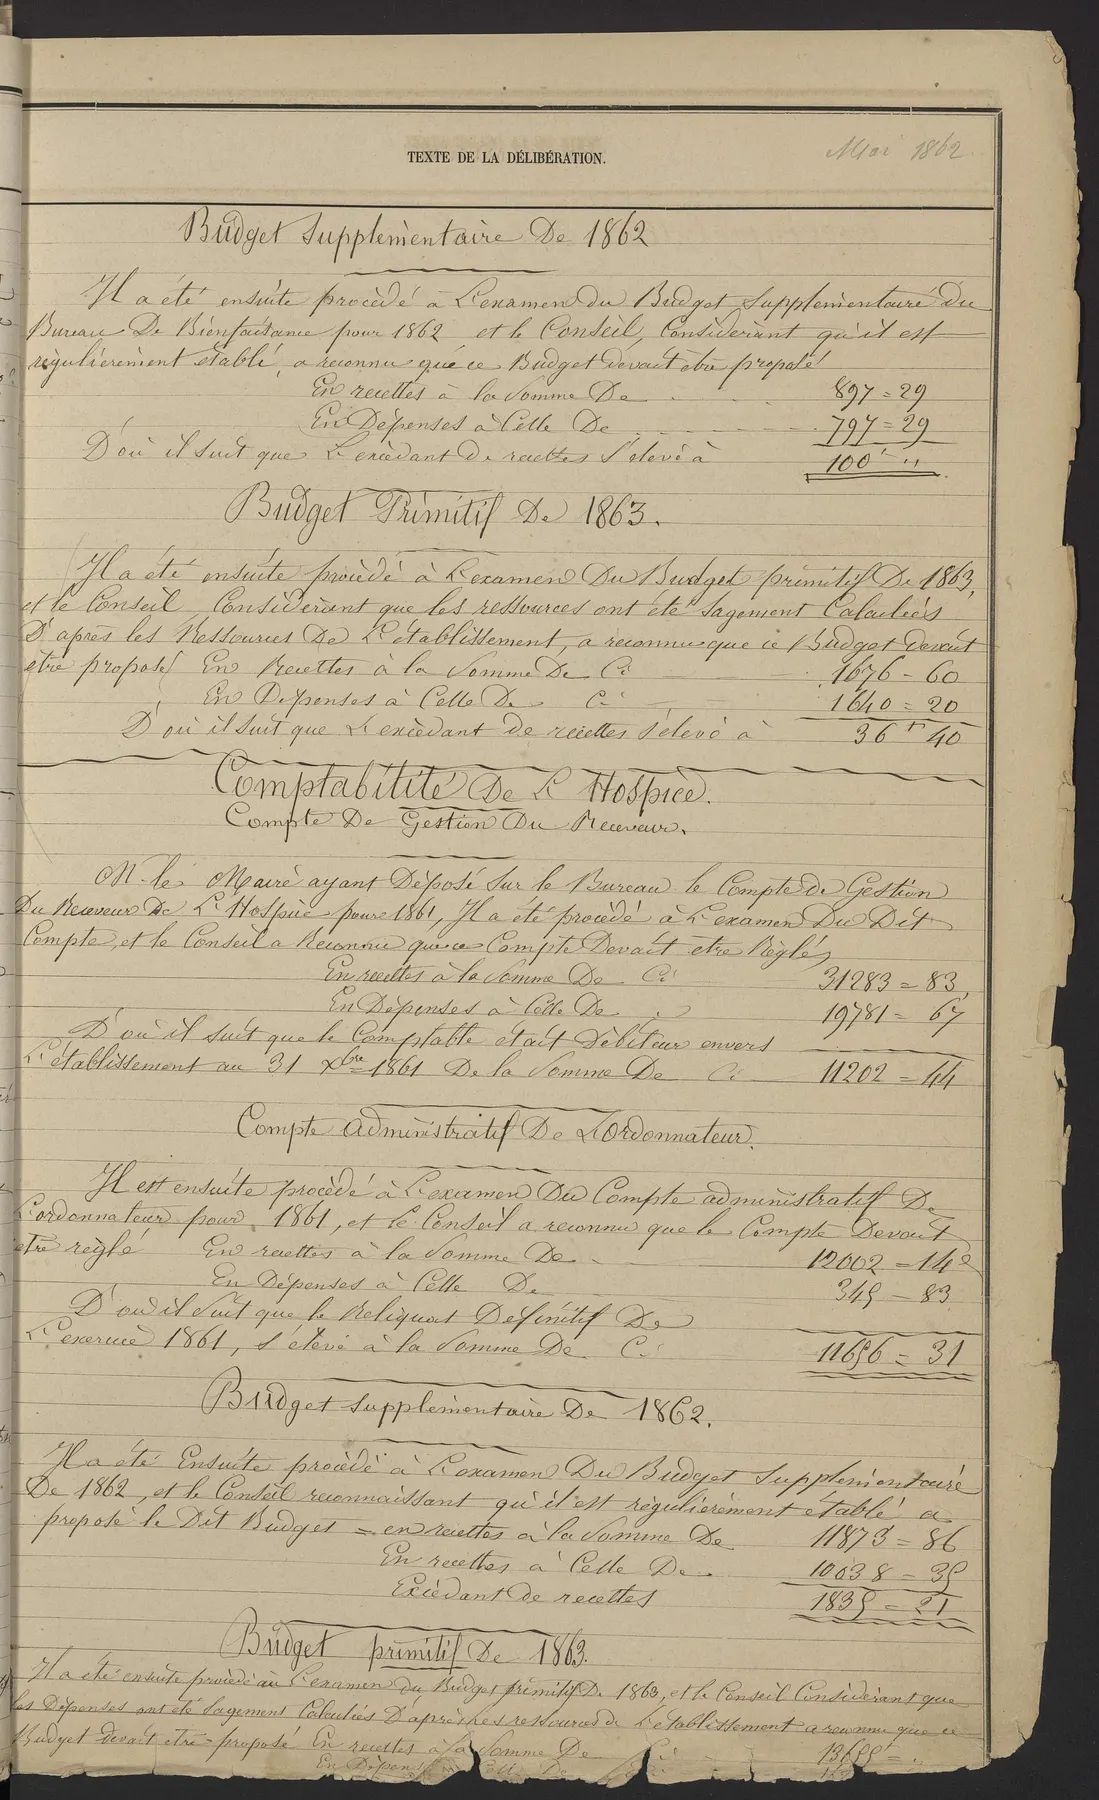 TEXTE DE LA DÉLIBÉRATION.
Mai 1862
Budget Supplementaire De 1862
Il a été ensuite procédé à L'examen du Budget Supplementairé Du
Bureau De Bienfaisance pour 1862 et le Conseil, Considerant qu'il est
régulièrement établé, a reconnu que ce Budget devait être proposé
En recettes à la Somme De 897 = 29
En Dépenses à Celle De 797 = 29
D'où il suit que L'excèdant De recettes S'élevé à 100 " "
Budget Primitif De 1863.
Il a été ensuite procèdé à L'examen Du Budget primitif De 1863,
et le Conseil, Considerant que les ressources ont été sagement Calculées
D'après les Ressources De L'établissement, a reconnu que ce Budget devait
être proposé En Recettes à la Somme De Ci 1676 - 60
En Dépenses à Celle De Ci 1640 = 20
D'où il suit que L'excèdant de recettes s'élevé à 36 " 40
Comptabilité De L'Hospice.
Compte De Gestion Du Receveur.
M. le Mairè ayant Déposé Sur le Bureau le Compte De Gestion
Du Receveur De L'Hospice pour 1861, Il a été procèdé à L'examen Du Dit
Compte, et le Conseil a Reconnu que ce Compte Devait être Règlés
En recettes à la Somme De Ci 31283 = 83
En Dépenses à Celle De 19781 = 67
D'où il suit que le Comptable était Débiteur envers
L'établissement au 31 Xbre 1861 De la Somme De Ci 11202 = 44
Compte administratif De L'Ordonnateur.
Il est ensuite procèdé à L'examen Du Compte administratif De
L'ordonnateur pour 1861, et le Conseil a reconnu que le Compte Devait
être règlé En recettes à la Somme De 12002 = 14
En Dépenses à Celle De 345 - 83
D'où il Suit que le Reliquat Définitif De
L'exercice 1861, s'élevé à la Somme De Ci 11656 = 31
Budget Supplementaire De 1862.
Il a été Ensuite procèdé à L'examen Du Budget Supplementairé
De 1862, et le Conseil reconnaissant qu'il est régulièrement établé a
proposé le Dit Budget = en recettes à la Somme De 11873 = 86
En recettes à Celle De 10038 = 35
Excèdant de recettes 1835 = 21
Budget primitif De 1863.
Il a été ensuite procèdé au L'examen du Budget primitif De 1863, et le Conseil Considèrant que
les Dépenses ont été Sagement Calculées D'après les ressources de L'établissement a reconnu que ce
Budget devait être proposé En recettes à La Somme De Ci
En Dépens Celle De